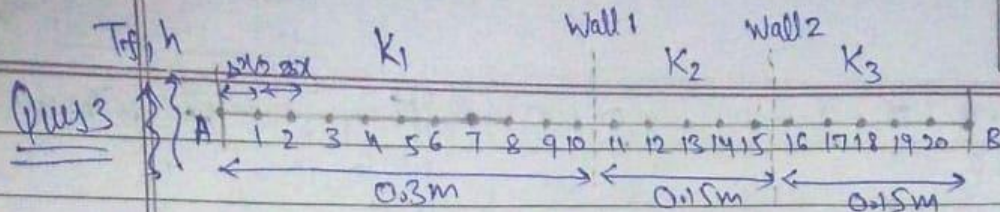 Tf, h K1 Wall 1 K2 Wall 2 K3
Δx/2 Δx
Ques 3
A 1 2 3 4 5 6 7 8 9 10 11 12 13 14 15 16 17 18 19 20 B
0.3m 0.15m 0.15m